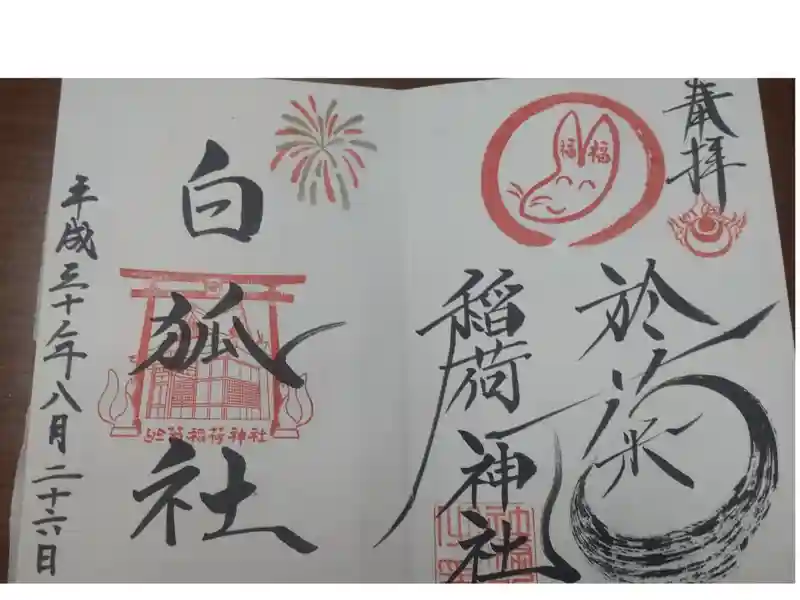 奉拝
於菊
稲荷神社
福福
白狐社
於菊稲荷神社
平成三十年八月二十六日